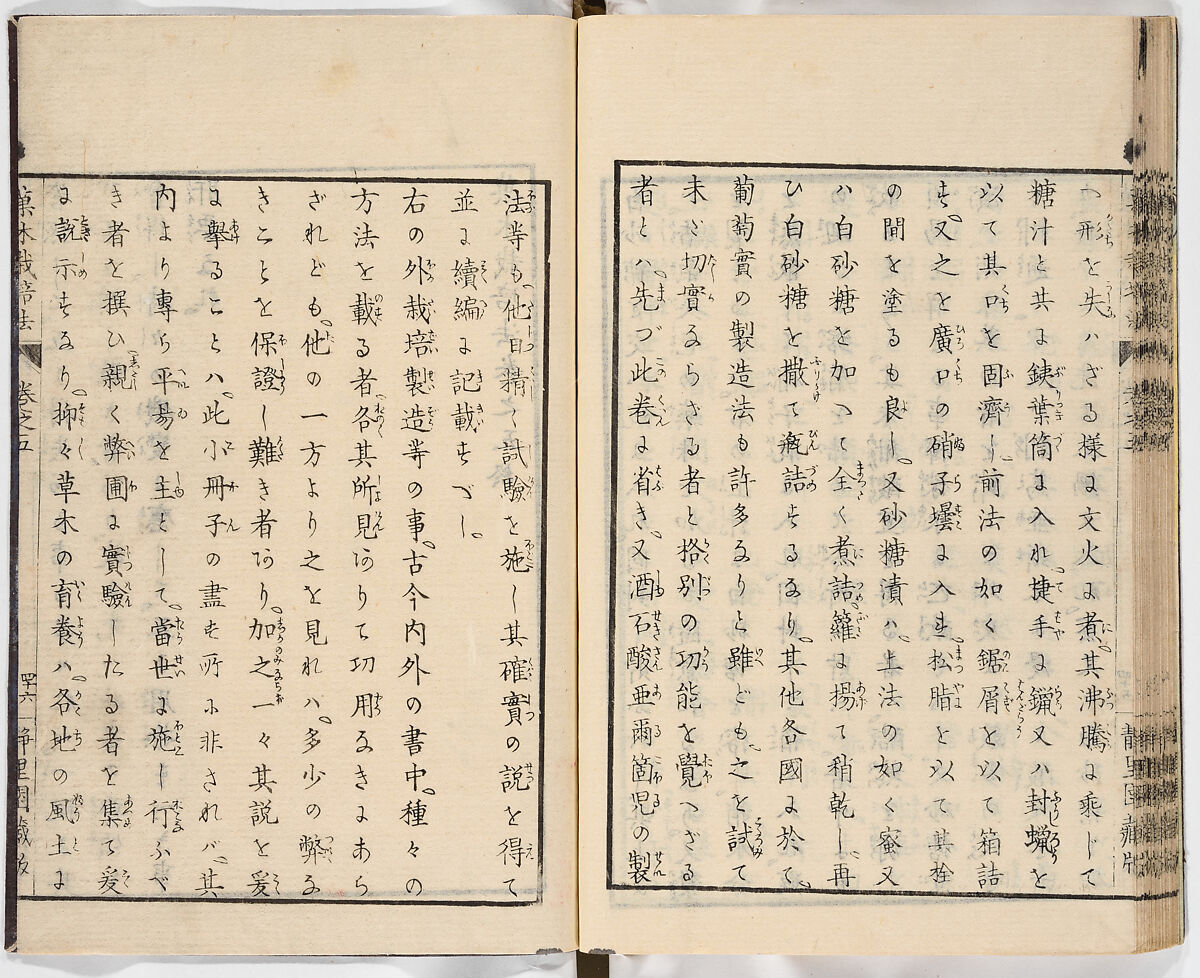 へ形を失ハざる様に文火に煮、其沸騰に乗じて
糖汁と共に銕葉筒に入れ、捷手に鑞又ハ封蝋を
以て其口を固濟し、前法の如く鋸屑を以て箱詰
す、又之を廣口の硝子壜に入れ、松脂を以て其栓
の間を塗るも良し、又砂糖漬ハ、上法の如く蜜又
ハ白砂糖を加へて全く煮詰、籮に揚て稍乾し、再
ひ白砂糖を撒て瓶詰するなり、其他各國に於て、
葡萄實の製造法も許多なりと雖ども、之を試て
未ダ切實ならざる者と格別の功能を覺へざる
者とハ、先づ此巻に省き、又酒石酸亜爾箇児の製
法等も、他日精く試驗を施し其確實の説を得て
並に續編に記載すべし、
右の外栽培製造等の事、古今内外の書中、種々の
方法を載る者各其所見ありて切用なきにあら
ざれども、他の一方より之を見れハ、多少の弊な
きことを保證し難き者あり、加之一々其説を爰
に擧ることハ、此小冊子の盡す所に非されバ、其
内より專ら平易を主として、當世に施し行ふべ
き者を撰ひ、親く弊圃に實驗したる者を集て爰
に説示すなり、抑々草木の育養ハ、各地の風土に
菓木栽培法 巻之五 四十六 静里園藏版